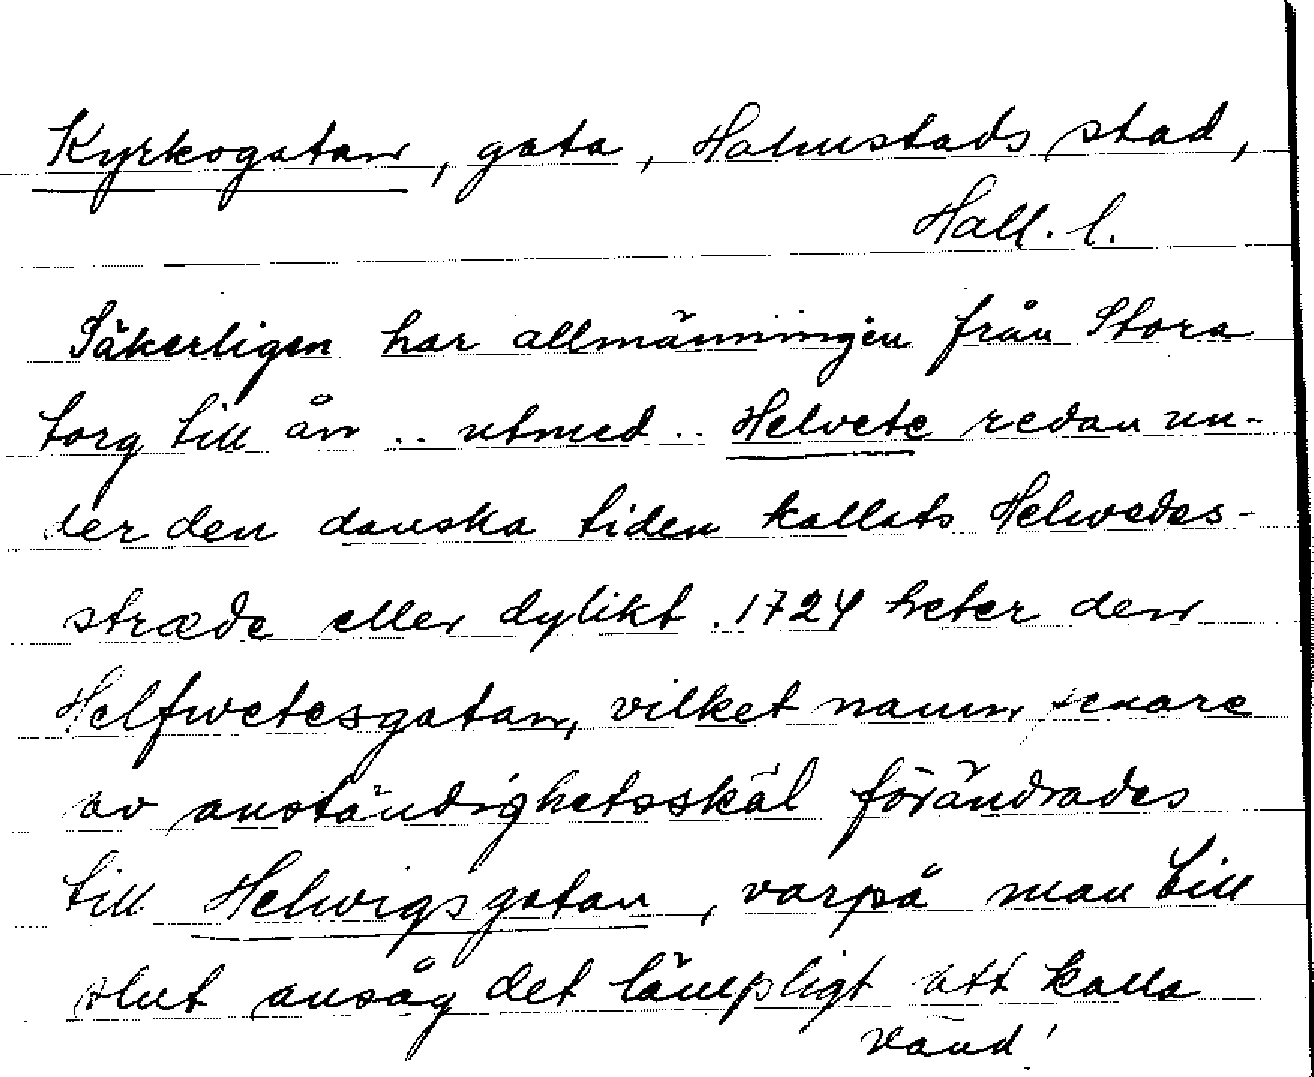 Kyrkogatan, gata, Halmstads stad,
Hall. l.
Säkerligen har allmänningen från Stora
torg till ån .. utmed .. Helvete redan un-
der den danska tiden kallats Helwedes-
stræde eller dylikt. 1724 heter den
Helfwetesgatan, vilket namn senare
av anständighetsskäl förändrades
till Helwigsgatan, varpå man till
slut ansåg det lämpligt att kalla
Vänd!